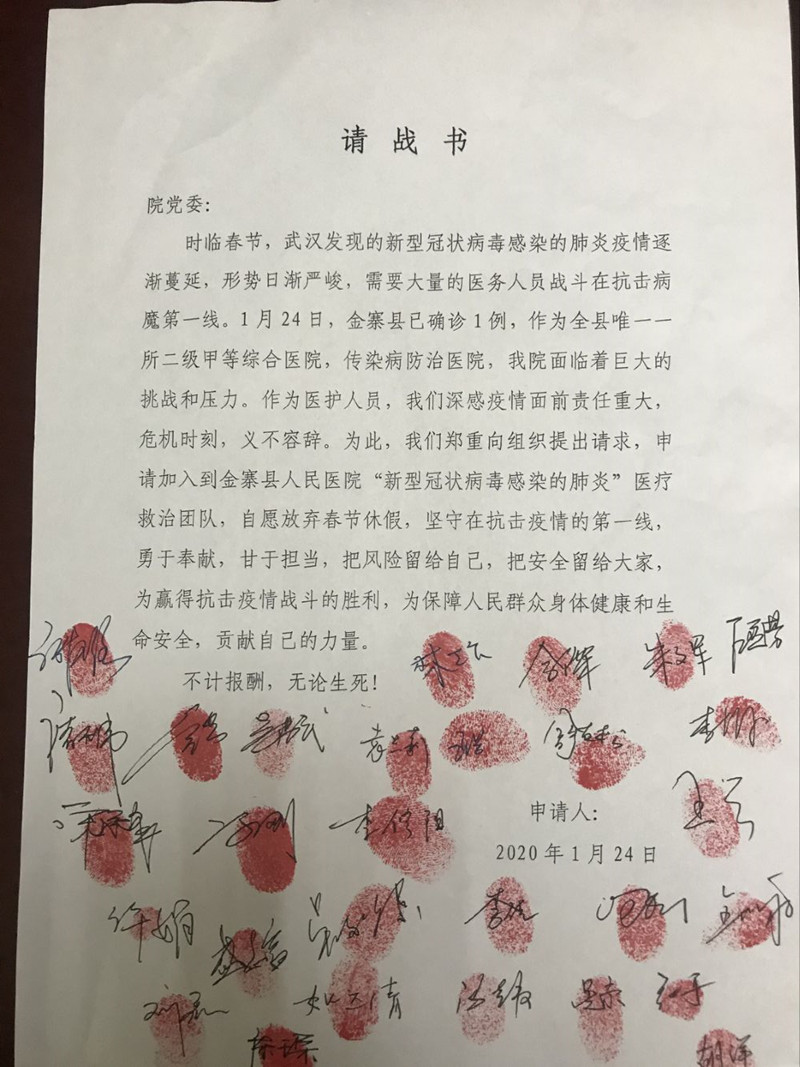 请战书
院党委：
时临春节，武汉发现的新型冠状病毒感染的肺炎疫情逐
渐蔓延，形势日渐严峻，需要大量的医务人员战斗在抗击病
魔第一线。1月24日，金寨县已确诊1例，作为全县唯一一
所二级甲等综合医院，传染病防治医院，我院面临着巨大的
挑战和压力。作为医护人员，我们深感疫情面前责任重大，
危机时刻，义不容辞。为此，我们郑重向组织提出请求，申
请加入到金寨县人民医院“新型冠状病毒感染的肺炎”医疗
救治团队，自愿放弃春节休假，坚守在抗击疫情的第一线，
勇于奉献，甘于担当，把风险留给自己，把安全留给大家，
为赢得抗击疫情战斗的胜利，为保障人民群众身体健康和生
命安全，贡献自己的力量。
不计报酬，无论生死！
申请人：
李俊阳
2020年1月24日
许娟
刘磊
胡洋